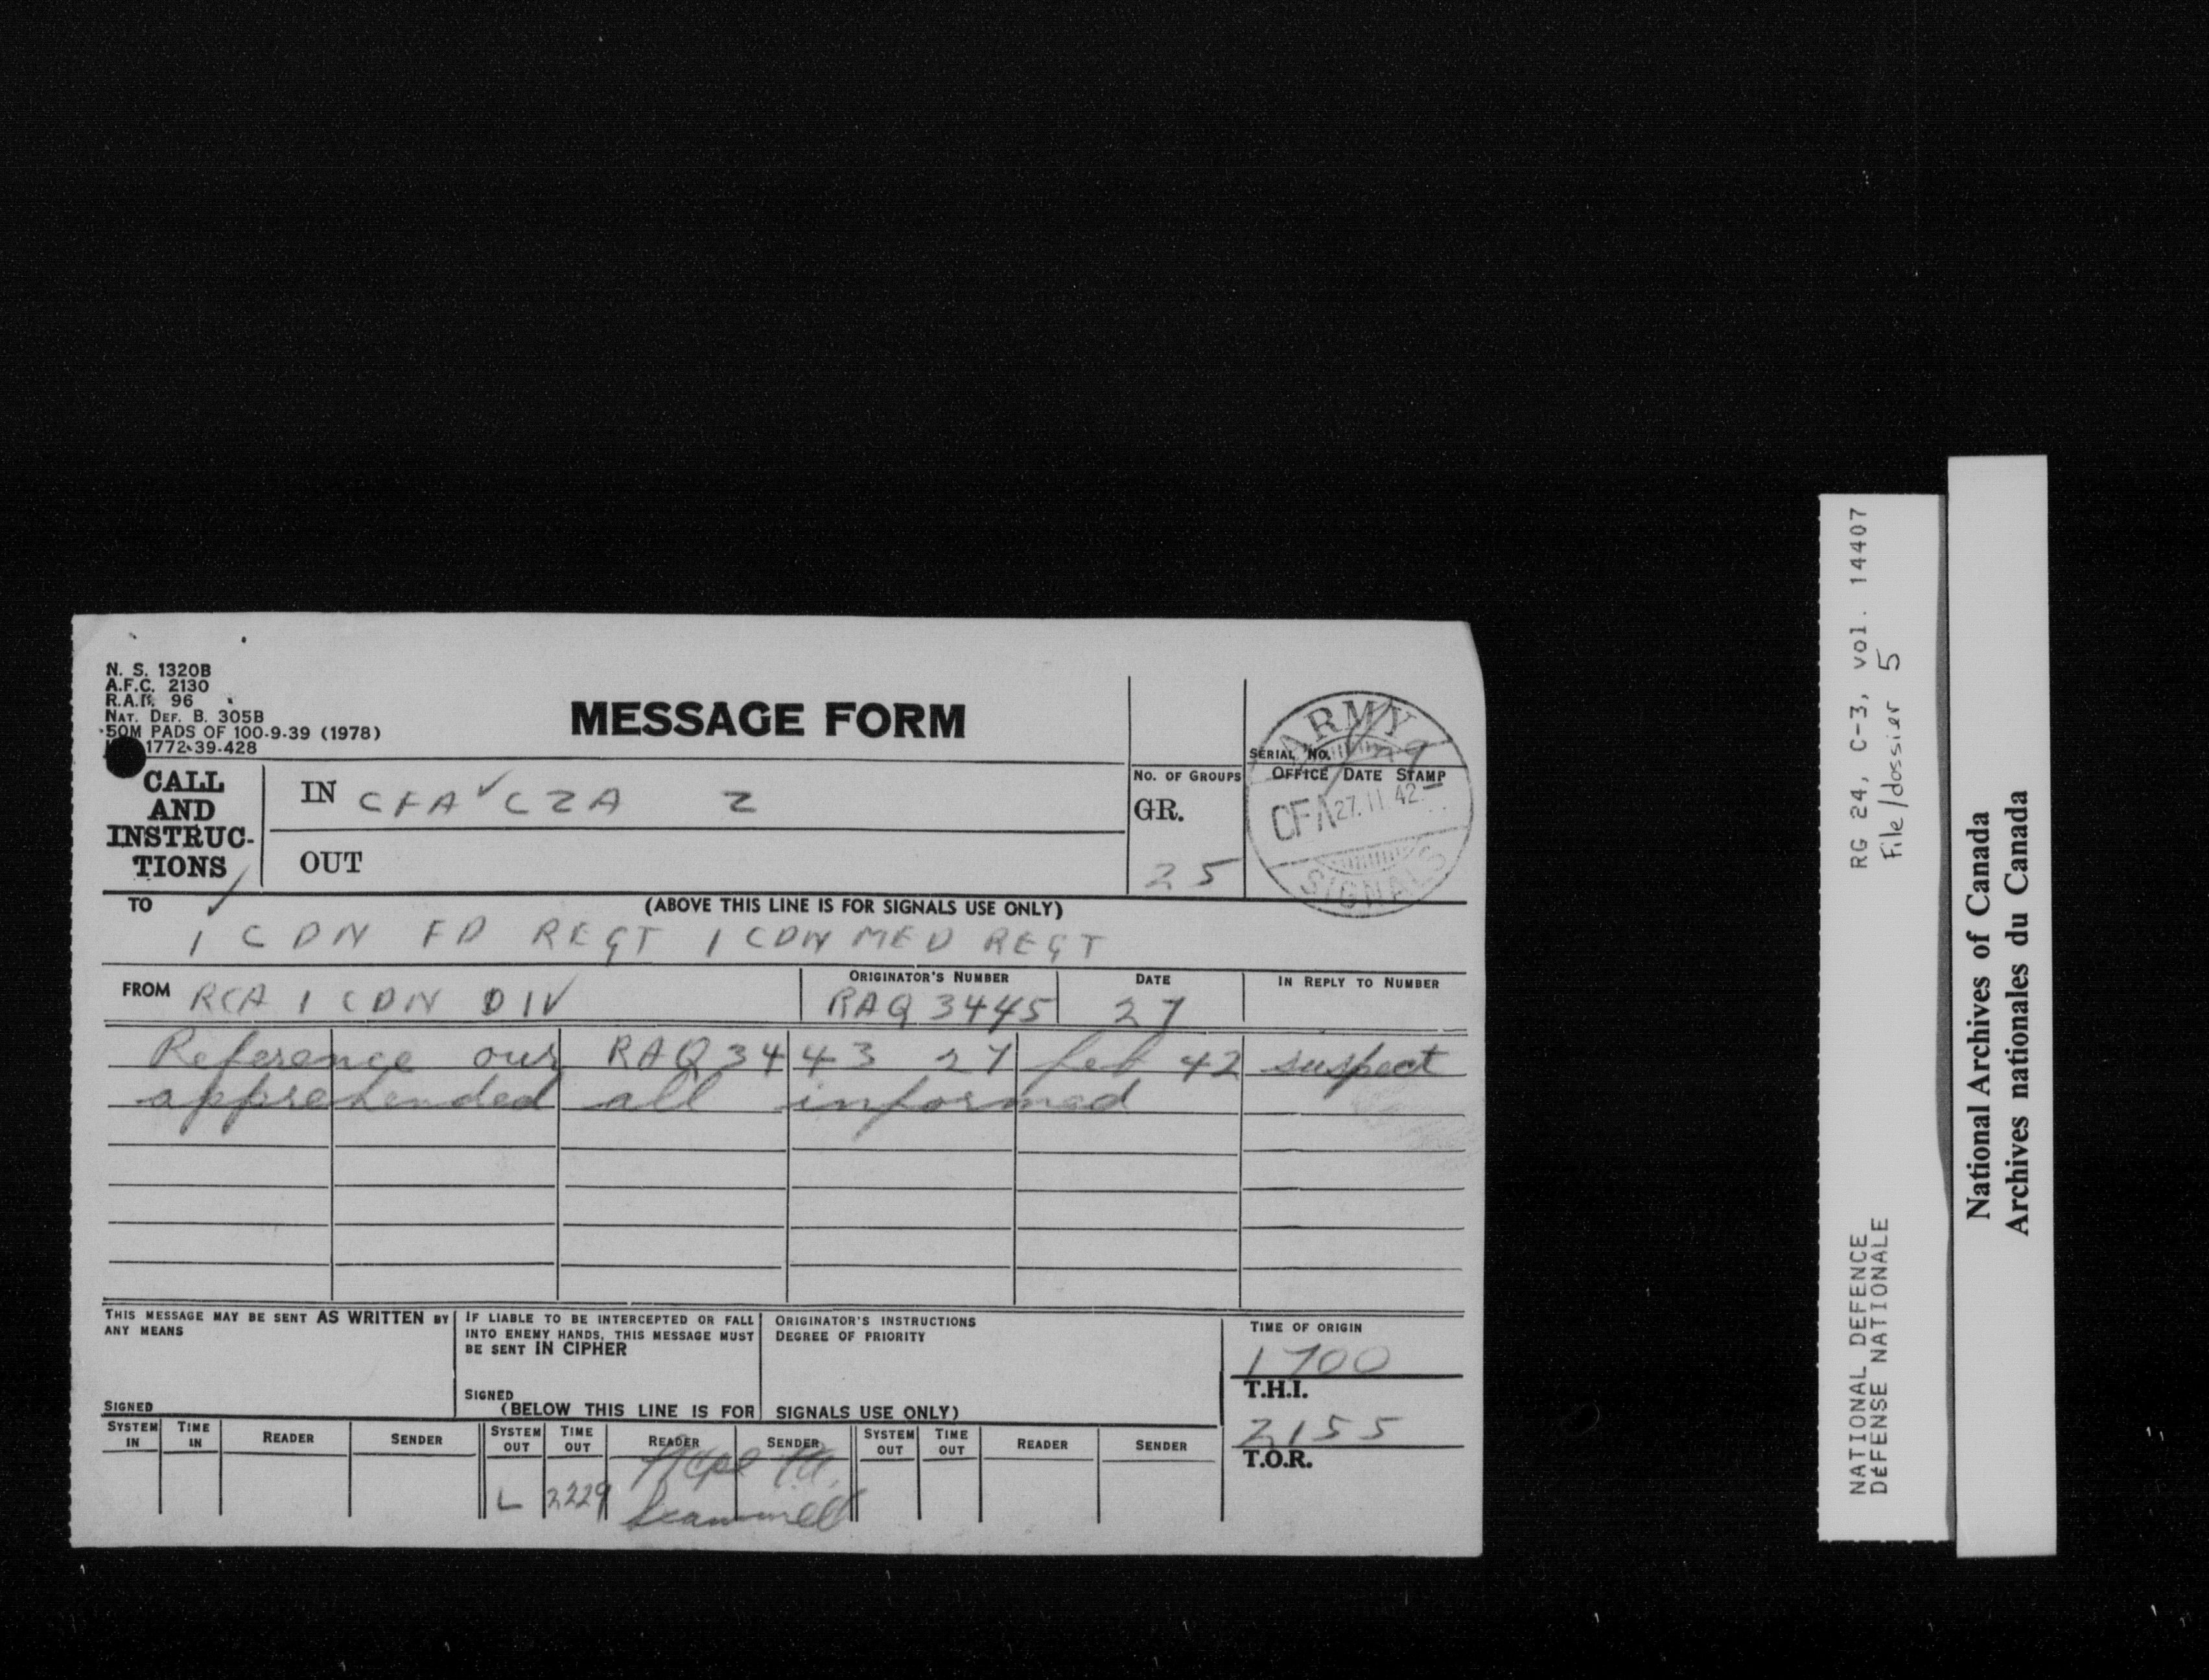 N. S. 1320B
A.F.C. 2130
R.A.F. 96
NAT. DEF. B. 305B
50M PADS OF 100-9-39 (1978)
1772-39-428
MESSAGE FORM
SERIAL NO.
ARMY
OFFICE DATE STAMP
CFA 27.II.42
SIGNALS
CALL AND INSTRUC-TIONS
IN CFA ✓ CZA Z
OUT
NO. OF GROUPS
GR.
25
(ABOVE THIS LINE IS FOR SIGNALS USE ONLY)
TO
1 CDN FD REGT 1 CDN MED REGT
FROM RCA 1 CDN DIV
ORIGINATOR'S NUMBER
RAQ 3445
DATE
27
IN REPLY TO NUMBER
Reference our RAQ 3443 27 feb 42 suspect
apprehended all informed
THIS MESSAGE MAY BE SENT AS WRITTEN BY
ANY MEANS
SIGNED
IF LIABLE TO BE INTERCEPTED OR FALL
INTO ENEMY HANDS, THIS MESSAGE MUST
BE SENT IN CIPHER
SIGNED
ORIGINATOR'S INSTRUCTIONS
DEGREE OF PRIORITY
TIME OF ORIGIN
1700
T.H.I.
2155
T.O.R.
(BELOW THIS LINE IS FOR SIGNALS USE ONLY)
SYSTEM IN TIME IN READER SENDER SYSTEM OUT TIME OUT READER SENDER SYSTEM OUT TIME OUT READER SENDER
L 2229
RG 24, C-3, vol. 14407
File/dossier 5
NATIONAL DEFENCE
DÉFENSE NATIONALE
National Archives of Canada
Archives nationales du Canada